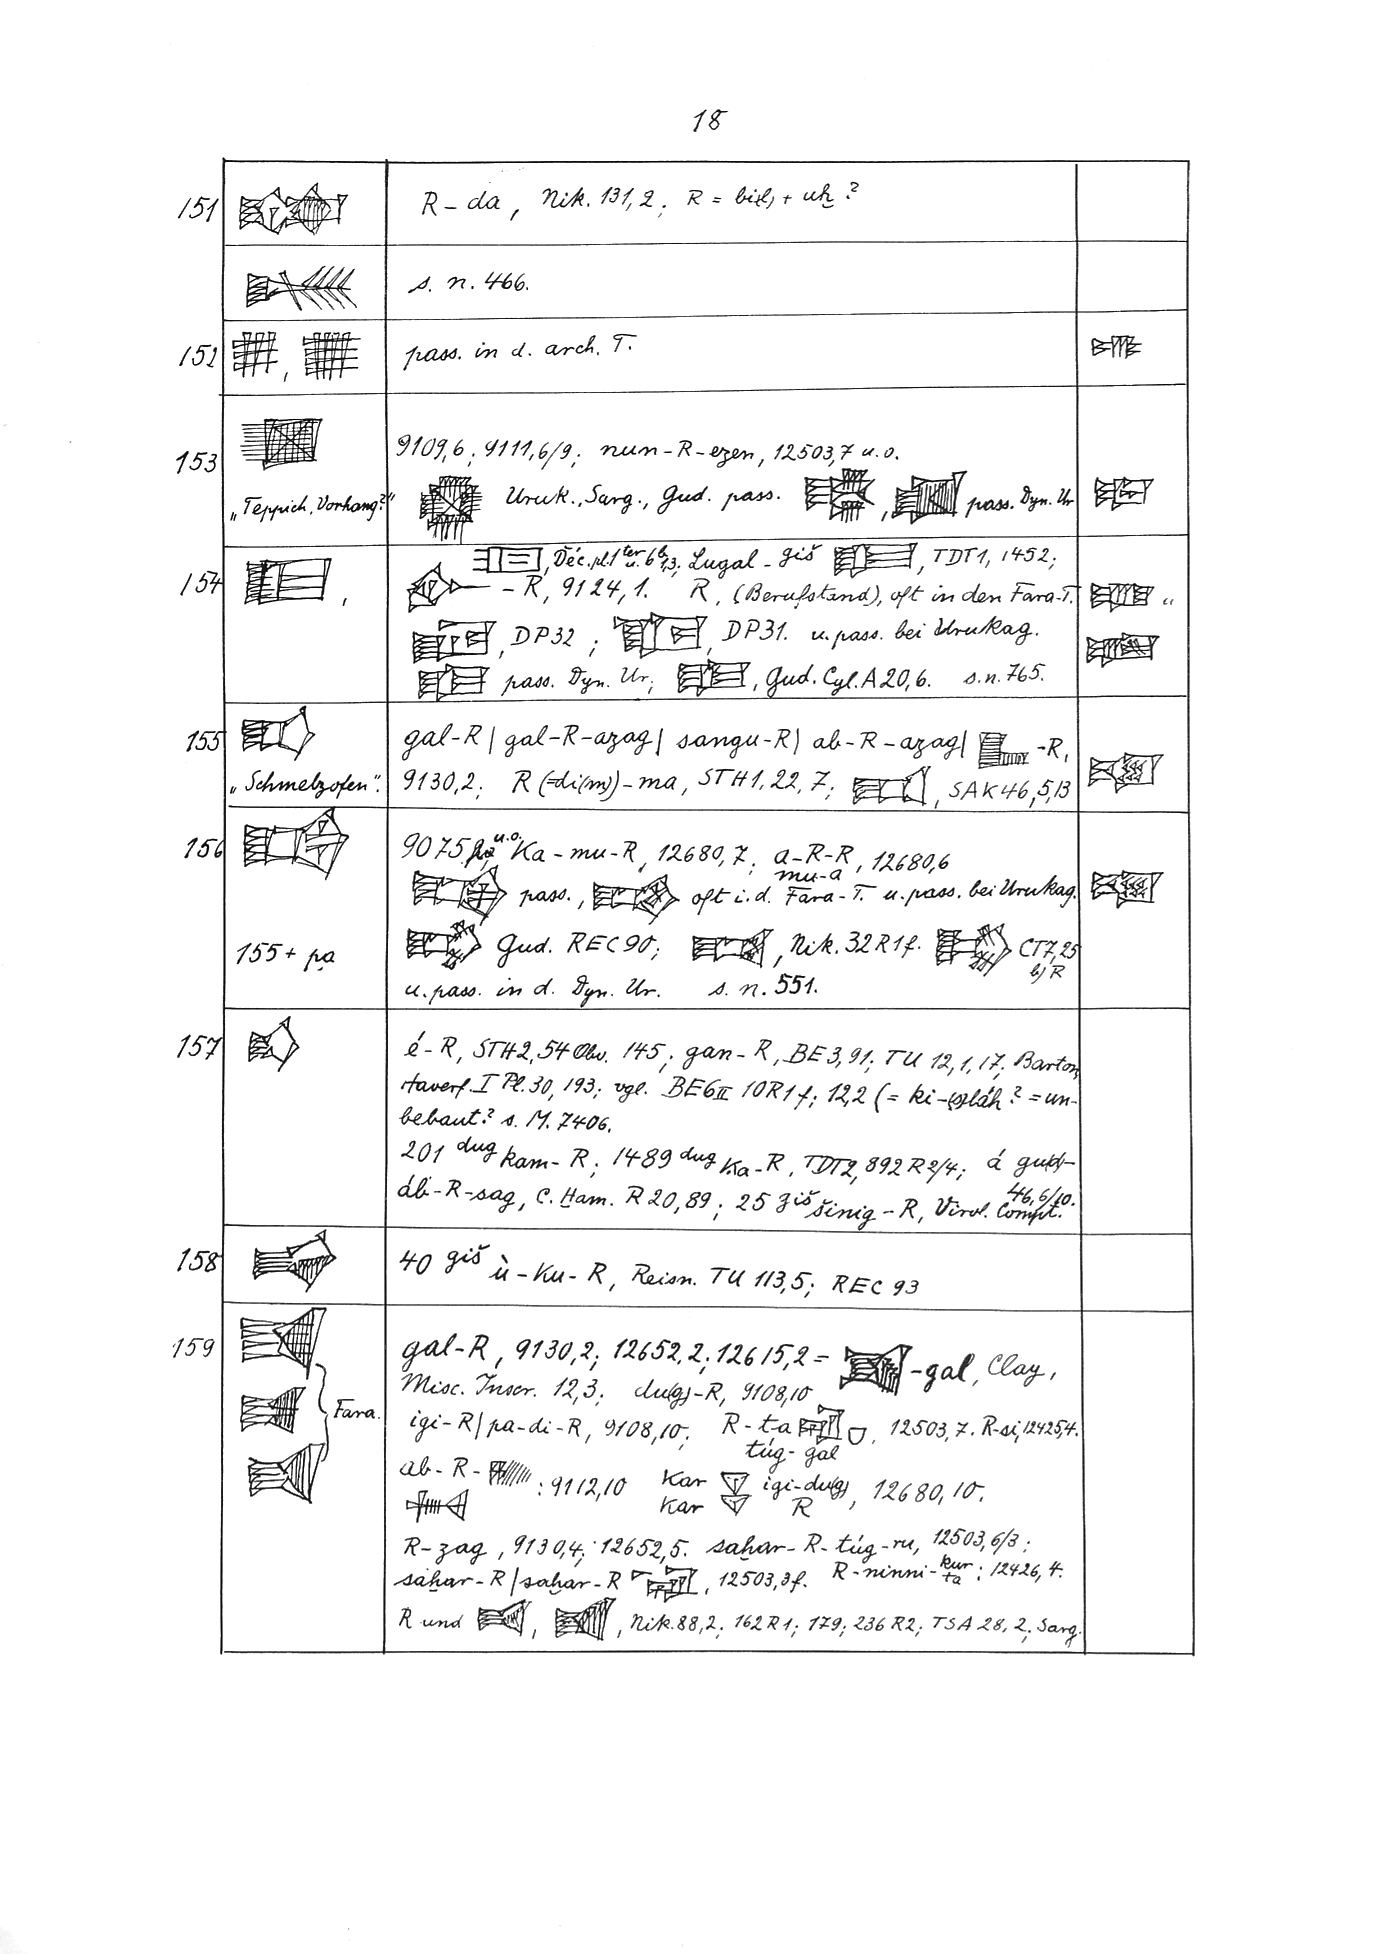 18
151 R – da, Nik. 131,2; R = bi(l) + uḫ ?
s. n. 466.
152 , pass. in d. arch. T.
153 9109,6; 9111,6/9; nun-R-ezen, 12503,7 u.o.
„Teppich, Vorhang?“ Uruk., Sarg., Gud. pass. , pass. Dyn. Ur
154 , , Déc. pl. 1 ter u. 6 b, 3; Lugal-giš , TDT1, 1452;
– R, 9124,1. R, (Berufstand), oft in den Fara-T. „
, DP32 ; , DP31. u. pass. bei Urukag.
pass. Dyn. Ur; , Gud. Cyl. A 20,6. s. n. 765.
155 gal-R | gal-R-azag | sangu-R | ab-R-azag | -R,
„Schmelzofen“. 9130,2; R (=di(m))-ma, STH1,22,7; , SAK46,5,13
156 9075 u.o. Ka-mu-R, 12680,7; a-R-R, 12680,6
mu-a
pass., oft i.d. Fara-T. u. pass. bei Urukag.
155 + pa Gud. REC90; , Nik. 32R1f. CT7,25
b) R
u. pass. in d. Dyn. Ur. s. n. 551.
157 é-R, STH2,54 Obv. 145; gan-R, BE3,91; TU 12,1,17; Barton,
Haverf. I Pl. 30, 193; vgl. BE6 II 10R1f; 12,2 (= ki- ? = un-
bebaut? s. M. 7406.
201 dug kam-R; 1489 dug Ka-R, TDT2, 892 R2/4; á gu(d)-
áb-R-sag, C. Ḫam. R 20,89; 25 giš šinig-R, Virol. Compt. 46,6/10.
158 40 giš ù-Ku-R, Reisn. TU 113,5; REC 93
159 gal-R, 9130,2; 12652,2; 12615,2 = -gal, Clay,
Misc. Inscr. 12,3; du(g)-R, 9108,10
Fara. igi-R | pa-di-R, 9108,10; R-ta , 12503,7. R-si, 12425,4.
túg-gal
ab-R- : 9112,10 Kar igi-du(g), 12680,10.
Kar R
R-zag, 9130,4; 12652,5. saḫar-R-túg-ru, 12503,6/3;
saḫar-R | saḫar-R , 12503,3f. R-ninni-kur; 12426,4.
ta
R und , , Nik. 88,2; 162R1; 179; 236R2; TSA 28,2; Sarg.